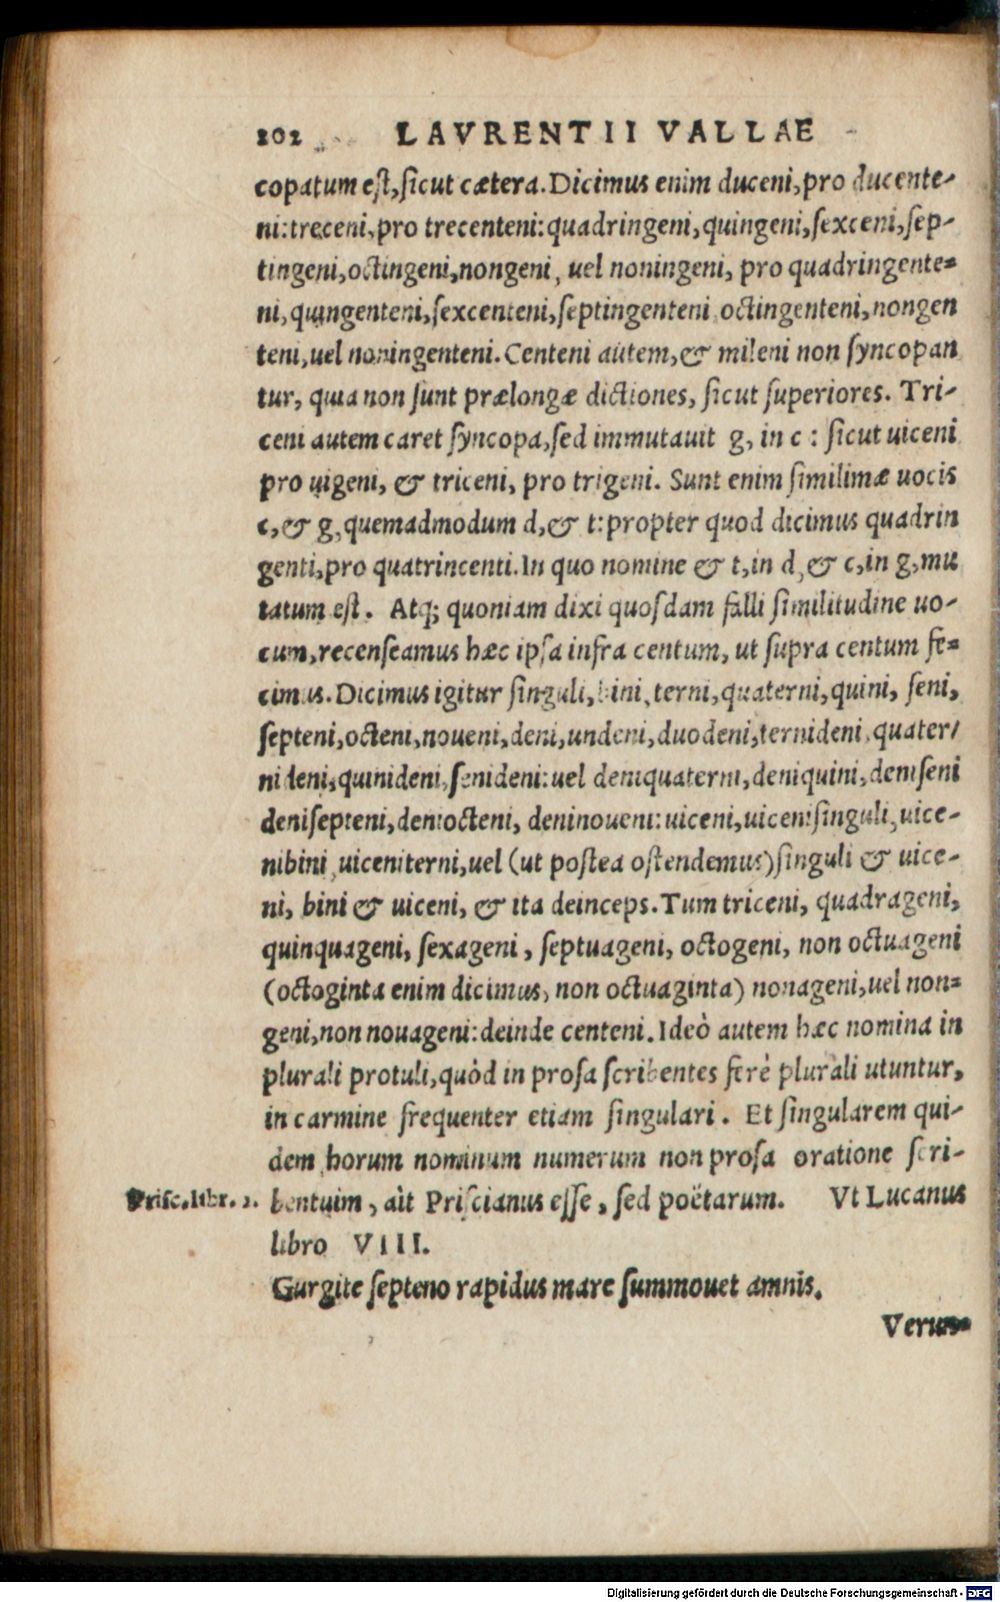 202 LAVRENTII VALLAE
copatum est, sicut cætera. Dicimus enim duceni, pro ducente-
ni: treceni, pro trecenteni: quadringeni, quingeni, sexceni, sep-
tingeni, octingeni, nongeni, uel noningeni, pro quadringente-
ni, quingenteni, sexcenteni, septingenteni, octingenteni, nongen
teni, uel noningenteni. Centeni autem, & mileni non syncopan
tur, quia non sunt prælongæ dictiones, sicut superiores. Tri-
ceni autem caret syncopa, sed immutauit g, in c: sicut uiceni
pro uigeni, & triceni, pro trigeni. Sunt enim similimæ uocis
c, & g, quemadmodum d, & t: propter quod dicimus quadrin
genti, pro quatrincenti. In quo nomine & t, in d, & c, in g, mu
tatum est. Atq; quoniam dixi quosdam falli similitudine uo-
cum, recenseamus hæc ipsa infra centum, ut supra centum fe-
cimus. Dicimus igitur singuli, bini, terni, quaterni, quini, seni,
septeni, octeni, noueni, deni, undeni, duodeni, ternideni, quater/
nideni, quinideni, senideni: uel deniquaterni, deniquini, deniseni
denisepteni, deniocteni, deninoueni: uiceni, uicenisinguli, uice-
nibini, uiceniterni, uel (ut postea ostendemus) singuli & uice-
ni, bini & uiceni, & ita deinceps. Tum triceni, quadrageni,
quinquageni, sexageni, septuageni, octogeni, non octuageni
(octoginta enim dicimus, non octuaginta) nonageni, uel non-
geni, non nouageni: deinde centeni. Ideò autem hæc nomina in
plurali protuli, quòd in prosa scribentes ferè plurali utuntur,
in carmine frequenter etiam singulari. Et singularem qui-
dem horum nominum numerum non prosa oratione scri-
Prisc. libr. 2. bentuim, ait Priscianus esse, sed poëtarum. Vt Lucanus
libro VIII.
Gurgite septeno rapidus mare summouet amnis.
Verum-
Digitalisierung gefördert durch die Deutsche Forschungsgemeinschaft - DFG